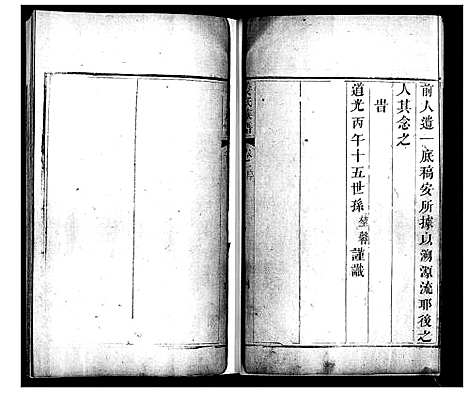 前人遺一底稿安所據以溯源流耶後之
人其念之
旹
道光丙午十五世孫 謹識